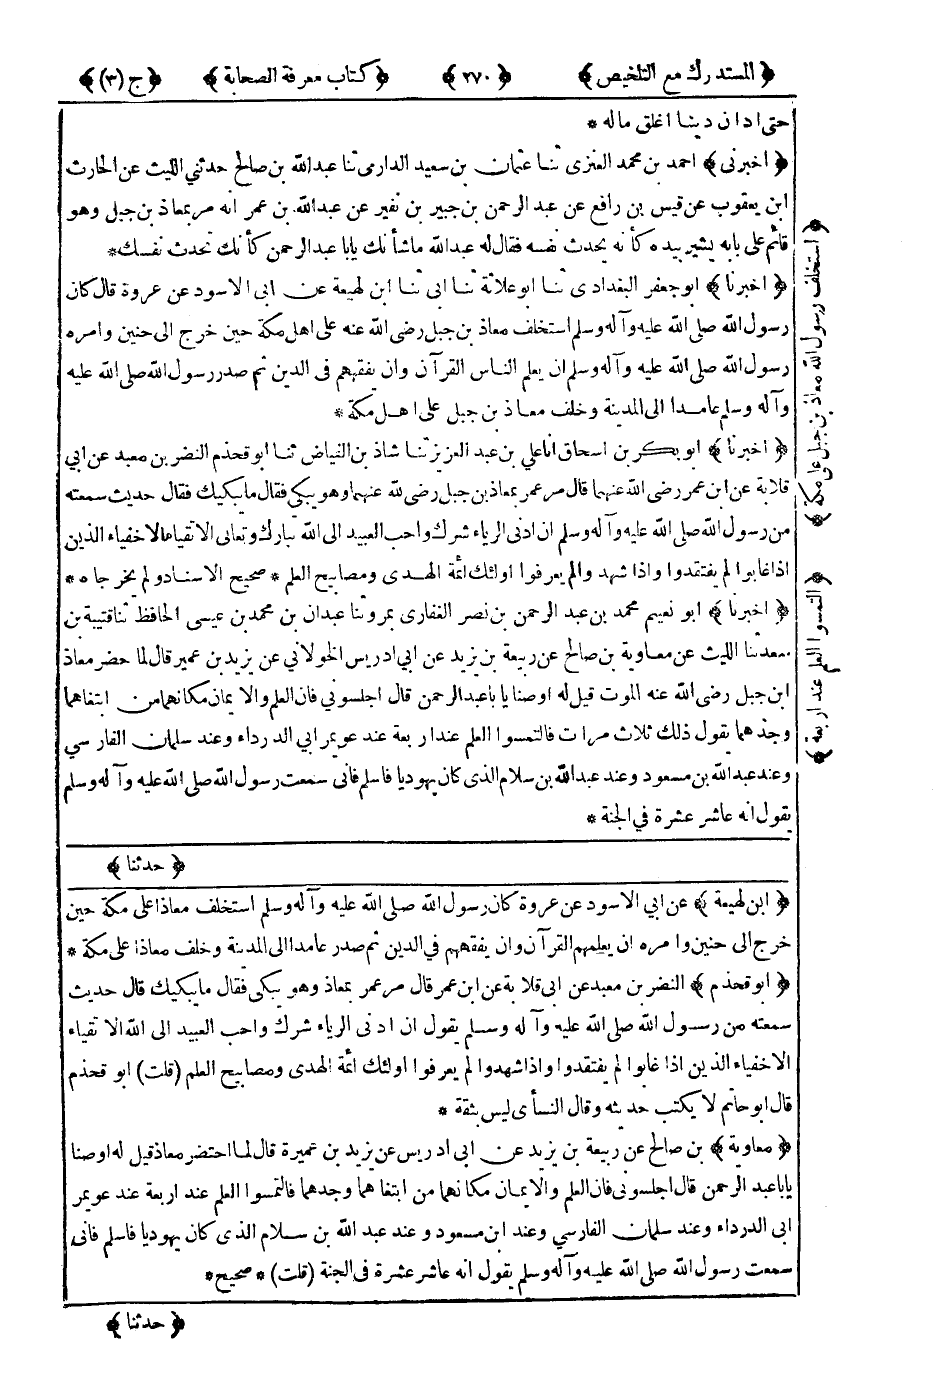 ﴿ المستدرك مع التلخيص ﴾ ﴿ ٢٧٠ ﴾ ﴿ كتاب معرفة الصحابة ﴾ ﴿ ج (٣) ﴾
حتى ادان دينا اغلق ماله *
﴿ اخبرنى ﴾ احمد بن محمد العنزى ثنا عثمان بن سعيد الدارمى ثنا عبدالله بن صالح حدثني الليث عن الحارث
ابن يعقوب عن قيس بن رافع عن عبد الرحمن بن جبير بن نفير عن عبدالله بن عمر انه مر بمعاذ بن جبل وهو
قائم على بابه يشير بيده كأنه يحدث نفسه فقال له عبدالله ماشأنك يابا عبدالرحمن كأنك تحدث نفسك*
﴿ اخبرنا ﴾ ابو جعفر البغدادى ثنا ابوعلاثة ثنا ابى ثنا ابن لهيعة عن ابى الاسود عن عروة قال كان
رسول الله صلى الله عليه وآله وسلم استخلف معاذ بن جبل رضى الله عنه على اهل مكة حين خرج الى حنين وامره
رسول الله صلى الله عليه وآله وسلم ان يعلم الناس القرآن وان يفقههم فى الدين ثم صدر رسول الله صلى الله عليه
وآله وسلم عامدا الى المدينة وخلف معاذ بن جبل على اهل مكة *
﴿ اخبرنا ﴾ ابو بكر بن اسحاق انا علي بن عبد العزيز ثنا شاذ بن الفياض ثنا ابو قحذم النضر بن معبد عن ابي
قلابة عن ابن عمر رضى الله عنهما قال مر عمر بمعاذ بن جبل رضى لله عنهما وهو يبكي فقال مايبكيك فقال حديث سمعته
من رسول الله صلى الله عليه وآله وسلم ان ادنى الرياء شرك واحب العبيد الى الله تبارك وتعالى الاتقياء الاخفياء الذين
اذا غابوا لم يفتقدوا واذا شهد والم يعرفوا اولئك ائمة الهدى ومصابيح العلم * صحيح الاسناد ولم يخرجاه *
﴿ اخبرنا ﴾ ابو نعيم محمد بن عبد الرحمن بن نصر الغفارى بمرو ثنا عبدان بن محمد بن عيسى الحافظ ثنا قتيبة بن
سعد ثنا الليث عن معاوية بن صالح عن ربيعة بن يزيد عن ابي ادريس الخولاني عن يزيد بن عمير قال لما حضر معاذ
ابن جبل رضى الله عنه الموت قيل له اوصنا يا باعبدالرحمن قال اجلسونى فان العلم والايمان مكانهما من ابتغاهما
وجدهما يقول ذلك ثلاث مرات فالتمسوا العلم عند اربعة عند عويمر ابي الدرداء وعند سلمان الفارسي
وعند عبدالله بن مسعود وعند عبدالله بن سلام الذى كان يهوديا فاسلم فانى سمعت رسول الله صلى الله عليه وآله وسلم
يقول انه عاشر عشرة في الجنة *
﴿ حدثنا ﴾
﴿ ابن لهيعة ﴾ عن ابي الاسود عن عروة كان رسول الله صلى الله عليه وآله وسلم استخلف معاذا على مكة حين
خرج الى حنين وامره ان يعلمهم القرآن وان يفقههم في الدين ثم صدر عامدا الى المدينة وخلف معاذا على مكة *
﴿ ابو قحذم ﴾ النضر بن معبد عن ابى قلابة عن ابن عمر قال مر عمر بمعاذ وهو يبكى فقال مايبكيك قال حديث
سمعته من رسول الله صلى الله عليه وآله وسلم يقول ان ادنى الرياء شرك واحب العبيد الى الله الاتقياء
الاخفياء الذين اذا غابوا لم يفتقدوا واذا شهدوا لم يعرفوا اولئك ائمة الهدى ومصابيح العلم (قلت) ابو قحذم
قال ابو حاتم لا يكتب حديثه وقال النسأى ليس بثقة *
﴿ معاوية ﴾ بن صالح عن ربيعة بن يزيد عن ابى ادريس عن يزيد بن عميرة قال لما احتضر معاذ قيل له اوصنا
ياباعبد الرحمن قال اجلسونى فان العلم والايمان مكانهما من ابتغاهما وجدهما فالتمسوا العلم عند اربعة عند عويمر
ابى الدرداء وعند سلمان الفارسي وعند ابن مسعود وعند عبد الله بن سلام الذى كان يهوديا فاسلم فانى
سمعت رسول الله صلى الله عليه وآله وسلم يقول انه عاشر عشرة فى الجنة (قلت) * صحيح*
﴿ حدثنا ﴾
﴿ استخلف رسول الله معاذ بن جبل على مكة ﴾
﴿ التمسوا العلم عند اربعة ﴾